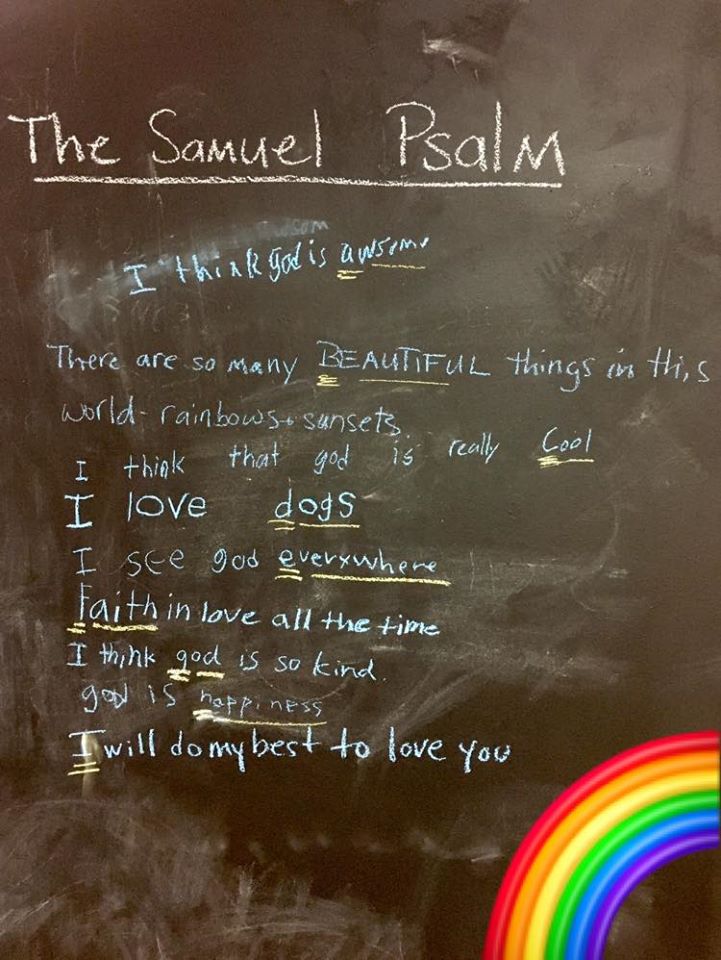 The Samuel Psalm
I think god is awsome
There are so many BEAUTIFUL things in this
world - rainbows + sunsets.
I think that god is really Cool
I love dogs
I see god everywhere
Faith in love all the time
I think god is so kind.
god is happiness
I will do my best to love you